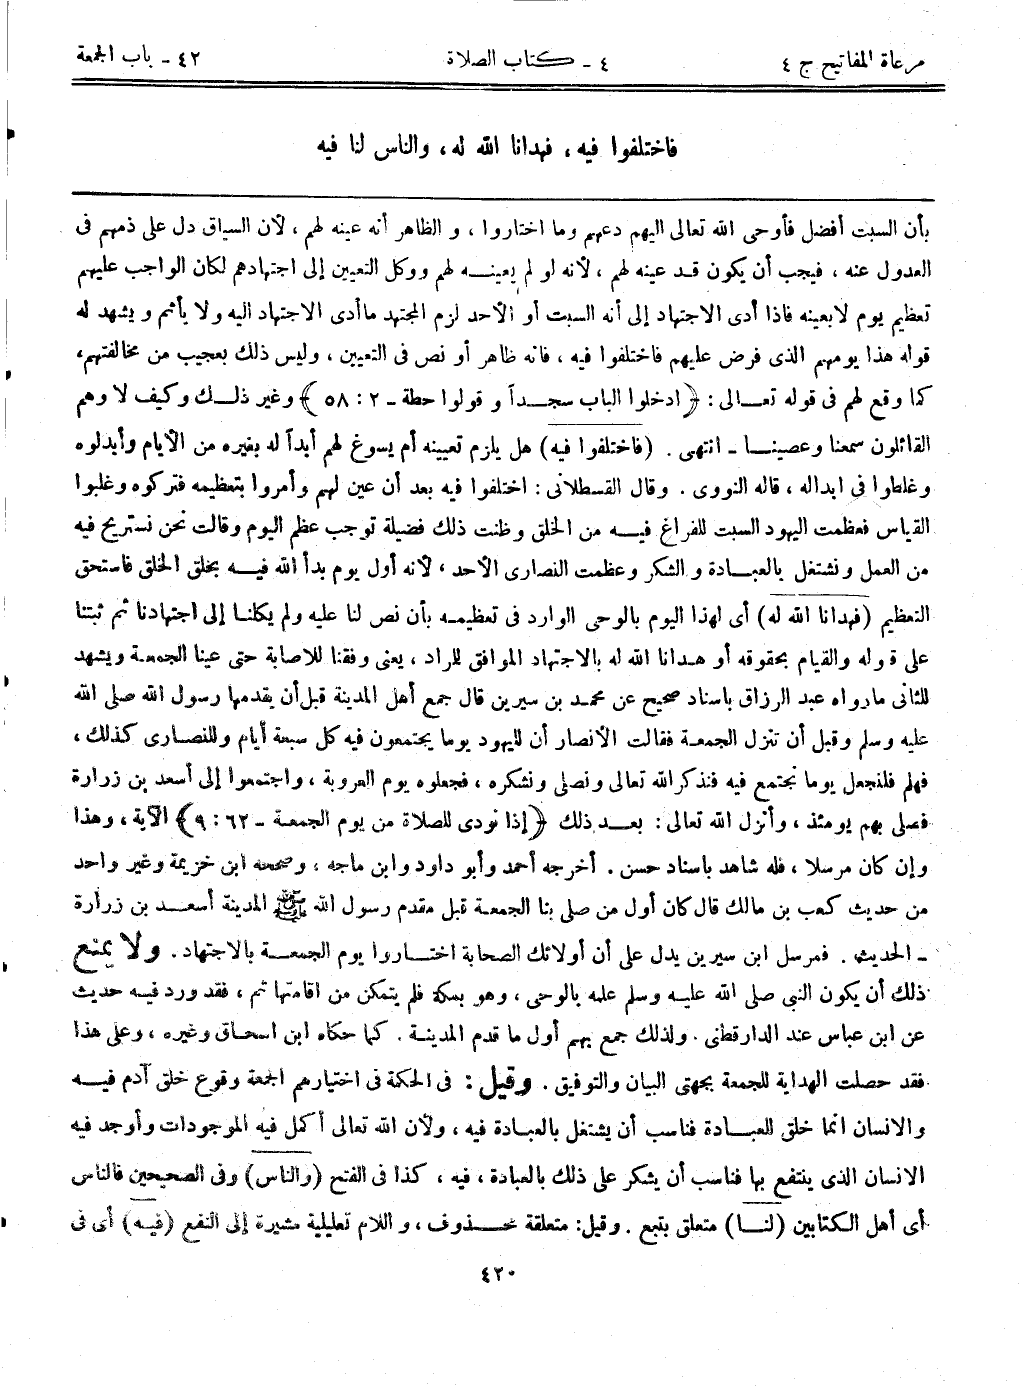 مرعاة المفاتيح ج ٤
٤ - كتاب الصلاة
٤٢ - باب الجمعة
فاختلفوا فيه، فهدانا الله له، والناس لنا فيه
بأن السبت أفضل فأوحى الله تعالى اليهم دعهم وما اختاروا، و الظاهر أنه عينه لهم، لأن السياق دل على ذمهم فى
العدول عنه، فيجب أن يكون قد عينه لهم، لأنه لو لم يعينه لهم ووكل التعيين إلى اجتهادهم لكان الواجب عليهم
تعظيم يوم لابعينه فاذا أدى الاجتهاد إلى أنه السبت أو الأحد لزم المجتهد ماأدى الاجتهاد اليه ولا يأثم و يشهد له
قوله هذا يومهم الذى فرض عليهم فاختلفوا فيه، فانه ظاهر أو نص فى التعيين، وليس ذلك بعجيب من مخالفتهم،
كما وقع لهم فى قوله تعالى: ﴿ادخلوا الباب سجداً و قولوا حطة - ٢: ٥٨﴾ وغير ذلك وكيف لا وهم
القائلون سمعنا وعصينا - انتهى. (فاختلفوا فيه) هل يلزم تعيينه أم يسوغ لهم أبداً له بغيره من الأيام وأبدلوه
وغلطوا فى ابداله، قاله النووى. وقال القسطلانى: اختلفوا فيه بعد أن عين لهم وأمروا بتعظيمه فتركوه وغلبوا
القياس فعظمت اليهود السبت للفراغ فيه من الخلق وظنت ذلك فضيلة توجب عظم اليوم وقالت نحن نستريح فيه
من العمل ونشتغل بالعبادة و الشكر وعظمت النصارى الأحد، لأنه أول يوم بدأ الله فيه بخلق الخلق فاستحق
التعظيم (فهدانا الله له) أى لهذا اليوم بالوحى الوارد فى تعظيمه بأن نص لنا عليه ولم يكلنا إلى اجتهادنا ثم ثبتنا
على قوله والقيام بحقوقه أو هدانا الله له بالاجتهاد الموافق للراد، يعنى وفقنا للاصابة حتى عينا الجمعة ويشهد
للثانى مارواه عبد الرزاق باسناد صحيح عن محمد بن سيرين قال جمع أهل المدينة قبل أن يقدمها رسول الله صلى الله
عليه وسلم وقبل أن تنزل الجمعة فقالت الأنصار أن لليهود يوما يجتمعون فيه كل سبعة أيام وللنصارى كذلك،
فهلم فلنجعل يوما نجتمع فيه فنذكر الله تعالى ونصلى ونشكره، فجعلوه يوم العروبة، واجتمعوا إلى أسعد بن زرارة
فصلى بهم يومئذ، وأنزل الله تعالى: بعد ذلك ﴿إذا نودى للصلاة من يوم الجمعة - ٦٢: ٩﴾ الآية، وهذا
وإن كان مرسلا، فله شاهد باسناد حسن. أخرجه أحمد وأبو داود وابن ماجه، وصححه ابن خزيمة وغير واحد
من حديث كعب بن مالك قال كان أول من صلى بنا الجمعة قبل مقدم رسول الله ﷺ المدينة أسعد بن زرارة
- الحديث. فمرسل ابن سيرين يدل على أن أولائك الصحابة اختاروا يوم الجمعة بالاجتهاد. ولا يمنع
ذلك أن يكون النبى صلى الله عليه وسلم علمه بالوحى، وهو بمكة فلم يتمكن من اقامتها ثم، فقد ورد فيه حديث
عن ابن عباس عند الدارقطنى. ولذلك جمع بهم أول ما قدم المدينة. كما حكاه ابن اسحاق وغيره، وعلى هذا
فقد حصلت الهداية للجمعة بجهتى البيان والتوفيق. وقيل: فى الحكمة فى اختيارهم الجمعة وقوع خلق آدم فيه
والانسان انما خلق للعبادة فناسب أن يشتغل بالعبادة فيه، ولأن الله تعالى أكمل فيه الموجودات وأوجد فيه
الانسان الذى ينتفع بها فناسب أن يشكر على ذلك بالعبادة، فيه، كذا فى الفتح (والناس) وفى الصحيحين فالناس
أى أهل الكتابين (لنا) متعلق بتبع. وقيل: متعلقة بمحذوف، و اللام تعليلية مشيرة إلى النفع (فيه) أى فى
٤٢٠